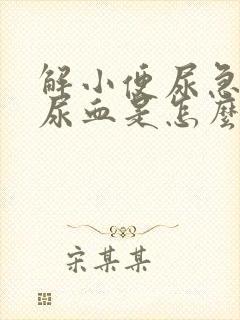 解小便尿急
尿血是怎麼
宋某某